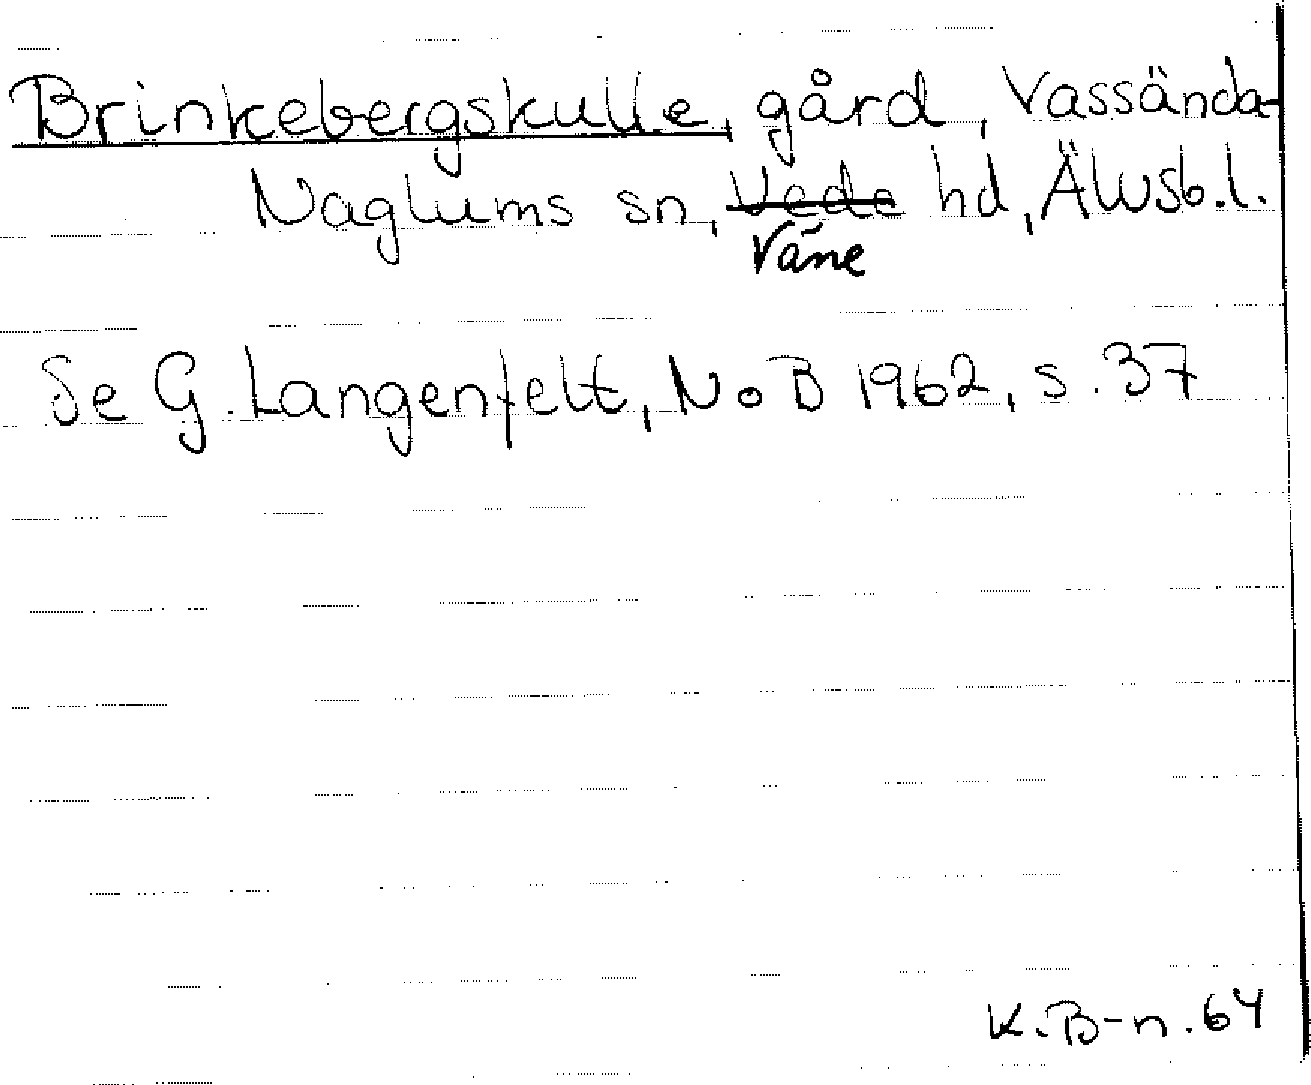 Brinkebergskulle, gård, Vassända-
Naglums sn, Vede hd, Älvsb.l.
Väne
Se G. Langenfelt, NoB 1962, s. 37
K.B-n.64